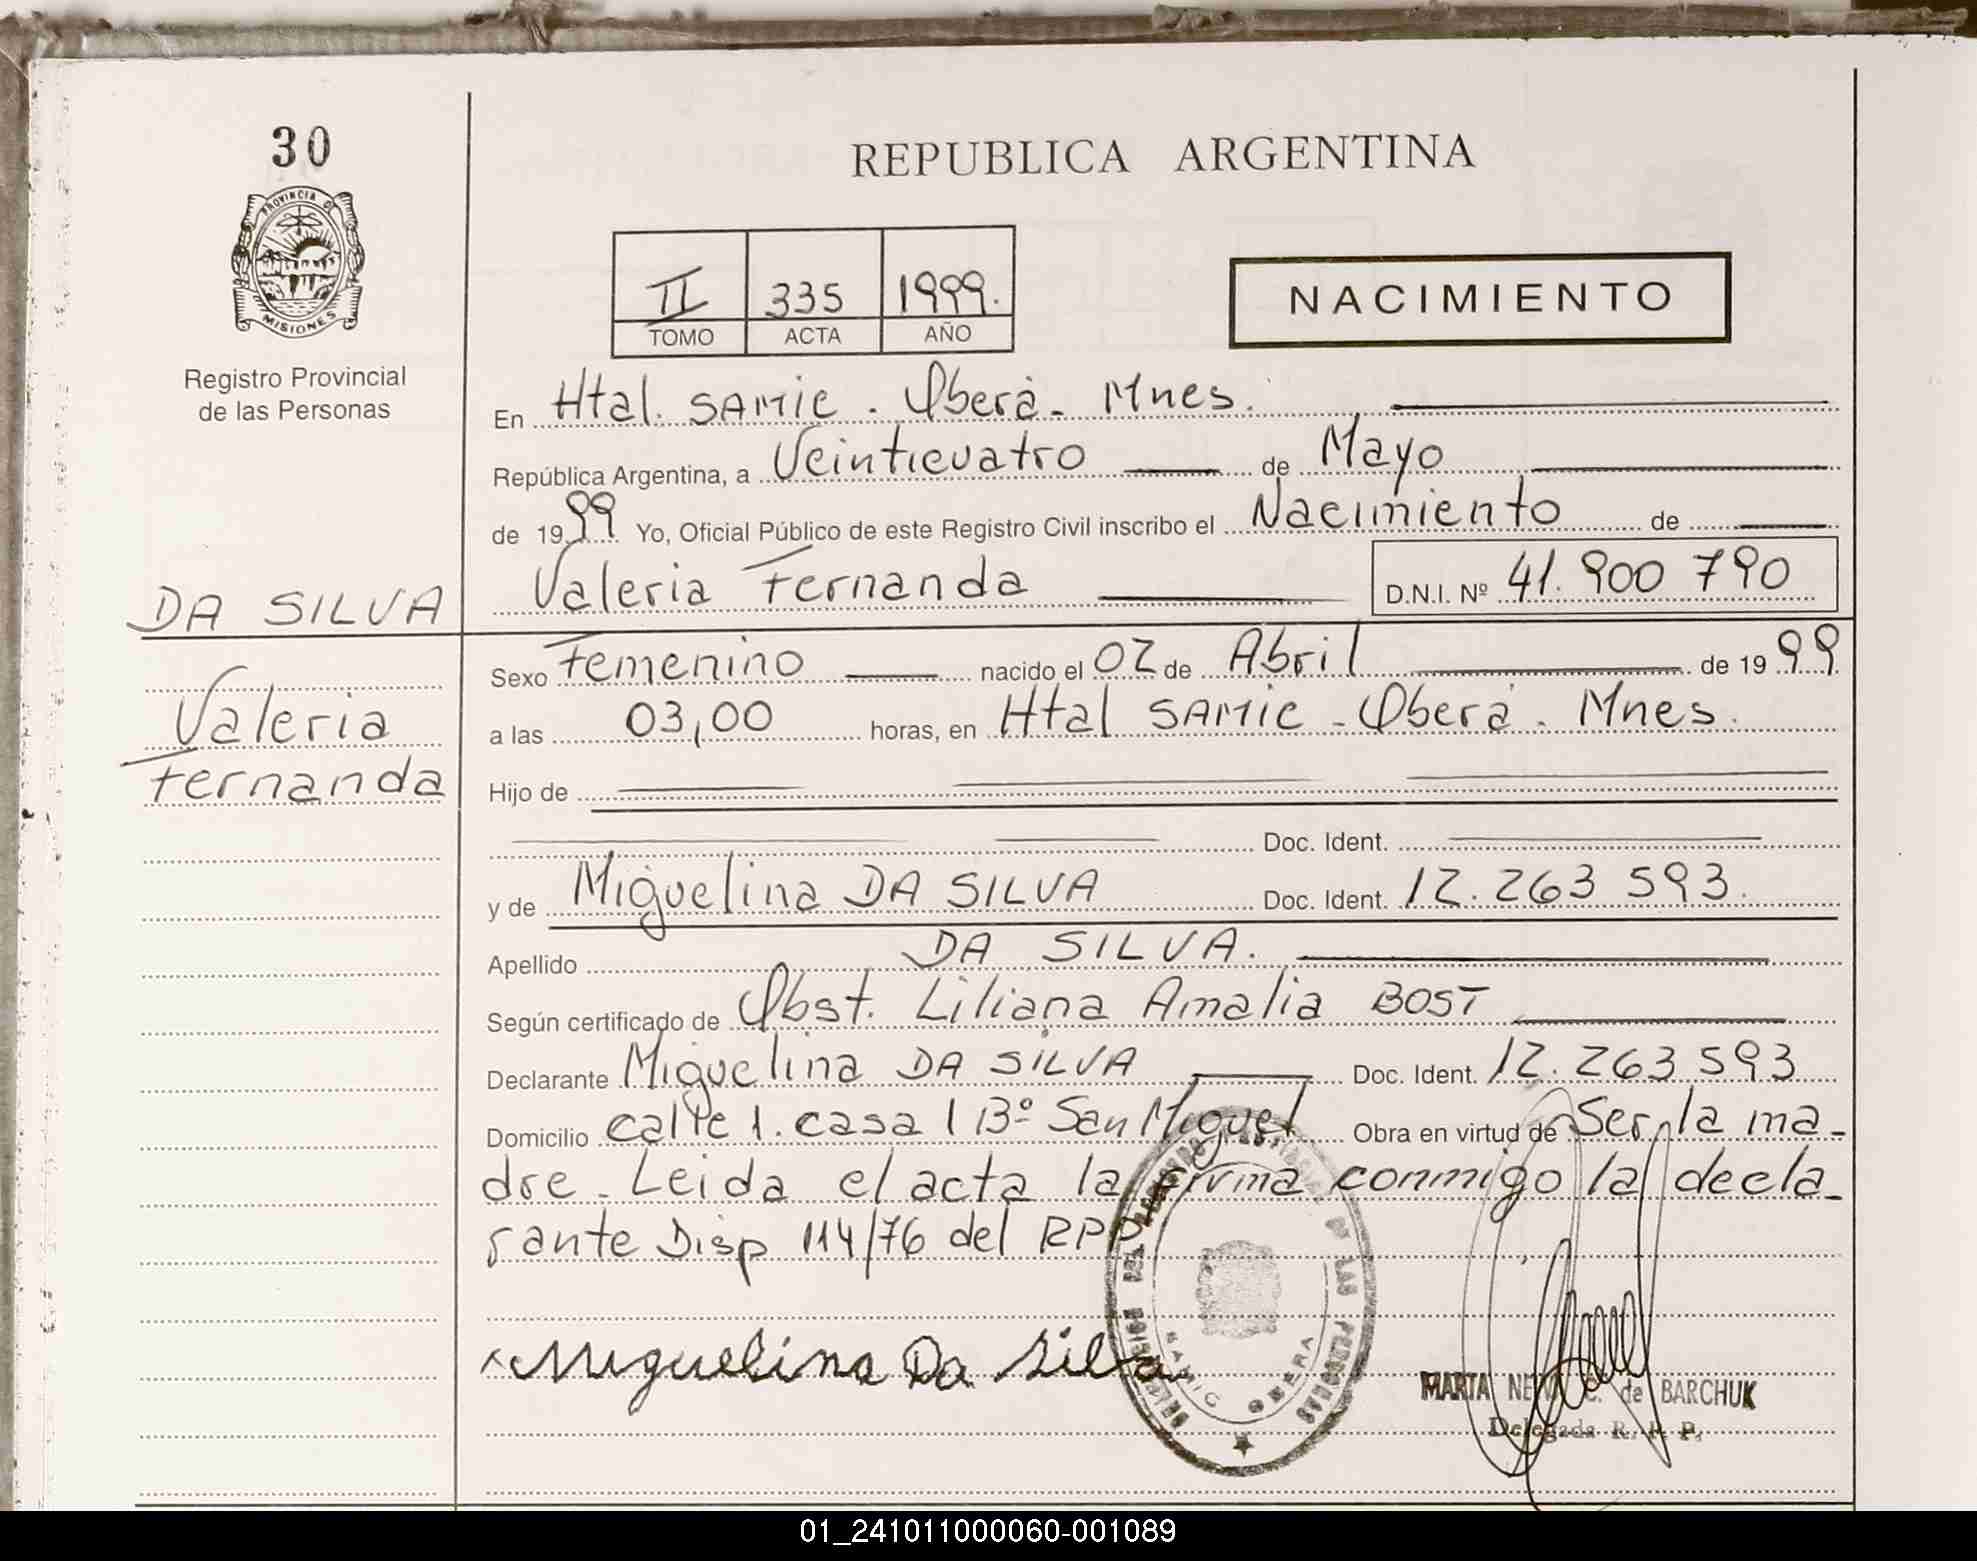 30
PROVINCIA DE
MISIONES
Registro Provincial
de las Personas
DA SILVA
Valeria
Fernanda
REPUBLICA ARGENTINA
II 335 1999.
TOMO ACTA AÑO
NACIMIENTO
En Htal. SAMIC. Oberá - Mnes.
República Argentina, a Veinticuatro de Mayo
de 1999 Yo, Oficial Público de este Registro Civil inscribo el Nacimiento de
Valeria Fernanda D.N.I. Nº 41.900 790
Sexo Femenino nacido el 02 de Abril de 1999
a las 03,00 horas, en Htal SAMIC - Oberá - Mnes.
Hijo de
Doc. Ident.
y de Miguelina DA SILVA Doc. Ident. 12.263 593.
Apellido DA SILVA.
Según certificado de Obst. Liliana Amalia BOST
Declarante Miguelina DA SILVA Doc. Ident. 12.263 593
Domicilio calle 1. casa 1 Bº San Miguel Obra en virtud de Ser la ma-
dre - Leida el acta la firma conmigo la decla-
rante Disp 114/76 del RPP
Miguelina Da Silva
DE LAS PERSONAS
SAMIC OBERA
MARTA C. de BARCHUK
Delegada R. P. P.
01_241011000060-001089